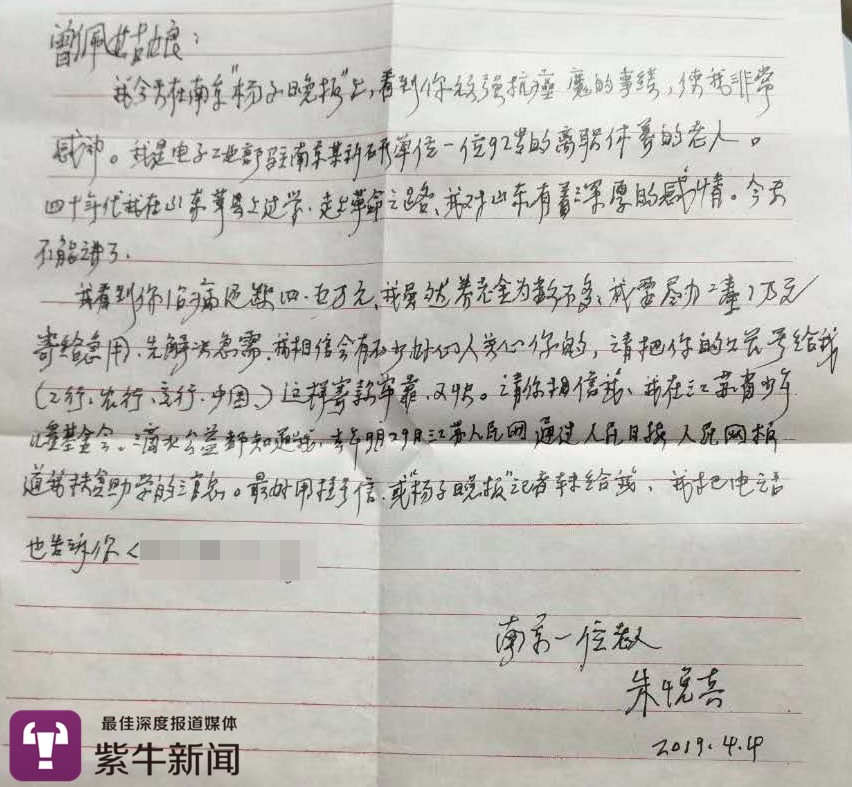 曾佩姑娘：
我今天在南京"杨子晚报"上，看到你顽强抗癌魔的事绩，使我非常
感动。我是电子工业部驻南京某新研单位一位92岁的离职休养的老人。
四十年代我在山东莒县上过学，走上革命之路、我对山东有着深厚的感情。今天
不能讲了。
我看到你治病还缺四.五万元、我虽然养老金为数不多、我要尽力凑1万元
寄给急用、先解决急需、我相信会有不少好心人关心你的，请把你的帐号给我
（工行、农行、交行、中国、）这样寄款牢靠、又快。请你相信我、我在江苏省少年
儿童基金会。滴水公益都知道我，去年9月29月江苏人民网通过人民日报人民网报
道我扶贫助学的消息。最好用挂号信，或"杨子晚报"记者转给我、我把电话
也告诉你<
南京一位老人
朱悦
2019.4.4
最佳深度报道媒体
紫牛新闻